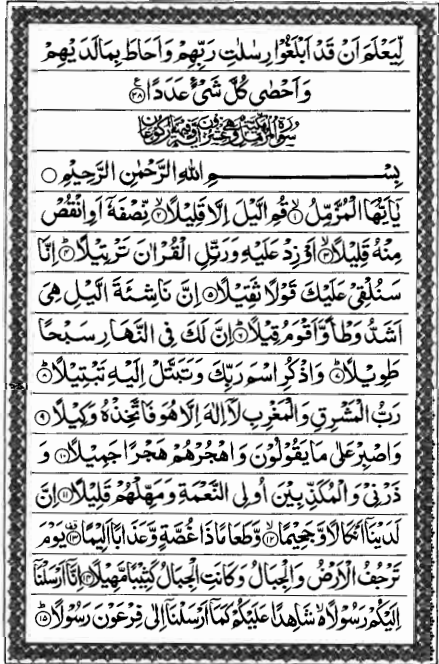 لِّيَعْلَمَ اَنْ قَدْ اَبْلَغُوْا رِسٰلٰتِ رَبِّهِمْ وَاَحَاطَ بِمَا لَدَيْهِمْ
وَاَحْصٰى كُلَّ شَیْءٍ عَدَدًا ﴿۲۸﴾
بِسْمِ اللهِ الرَّحْمٰنِ الرَّحِيْمِ
يٰۤاَيُّهَا الْمُزَّمِّلُ ﴿۱﴾ قُمِ الَّيْلَ اِلَّا قَلِيْلًا ﴿۲﴾ نِّصْفَهٗۤ اَوِ انْقُصْ
مِنْهُ قَلِيْلًا ﴿۳﴾ اَوْ زِدْ عَلَيْهِ وَرَتِّلِ الْقُرْاٰنَ تَرْتِيْلًا ﴿۴﴾ اِنَّا
سَنُلْقِیْ عَلَيْكَ قَوْلًا ثَقِيْلًا ﴿۵﴾ اِنَّ نَاشِئَةَ الَّيْلِ هِیَ
اَشَدُّ وَطْاً وَّاَقْوَمُ قِيْلًا ﴿۶﴾ اِنَّ لَكَ فِی النَّهَارِ سَبْحًا
طَوِيْلًا ﴿۷﴾ وَاذْكُرِ اسْمَ رَبِّكَ وَتَبَتَّلْ اِلَيْهِ تَبْتِيْلًا ﴿۸﴾
رَبُّ الْمَشْرِقِ وَالْمَغْرِبِ لَاۤ اِلٰهَ اِلَّا هُوَ فَاتَّخِذْهُ وَكِيْلًا ﴿۹﴾
وَاصْبِرْ عَلٰى مَا يَقُوْلُوْنَ وَاهْجُرْهُمْ هَجْرًا جَمِيْلًا ﴿۱۰﴾ وَ
ذَرْنِیْ وَالْمُكَذِّبِيْنَ اُولِی النَّعْمَةِ وَمَهِّلْهُمْ قَلِيْلًا ﴿۱۱﴾ اِنَّ
لَدَيْنَاۤ اَنْكَالًا وَّجَحِيْمًا ﴿۱۲﴾ وَّطَعَامًا ذَا غُصَّةٍ وَّعَذَابًا اَلِيْمًا ﴿۱۳﴾ يَوْمَ
تَرْجُفُ الْاَرْضُ وَالْجِبَالُ وَكَانَتِ الْجِبَالُ كَثِيْبًا مَّهِيْلًا ﴿۱۴﴾ اِنَّاۤ اَرْسَلْنَاۤ
اِلَيْكُمْ رَسُوْلًا شَاهِدًا عَلَيْكُمْ كَمَاۤ اَرْسَلْنَاۤ اِلٰى فِرْعَوْنَ رَسُوْلًا ﴿۱۵﴾